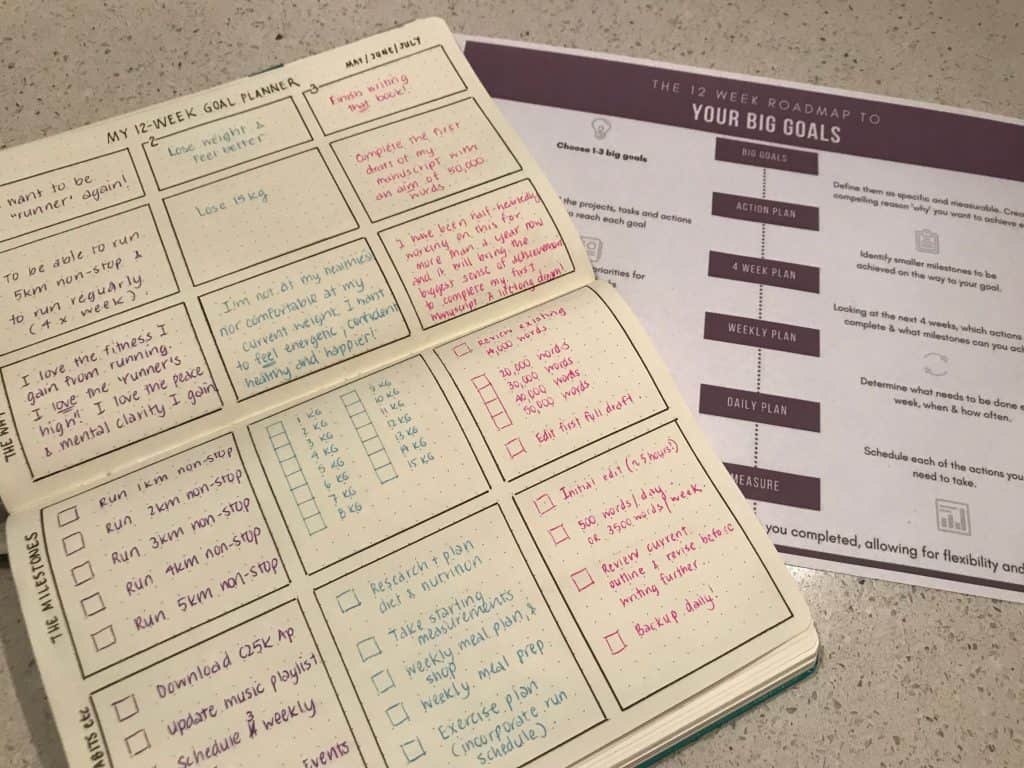 MY 12-WEEK GOAL PLANNER
MAY/JUNE/JULY
want to be
'runner' again!
To be able to run
5km non-stop &
to run reguarly.
(4 x week).
I love the fitness I
gain from running.
I love the 'runner's
high'! I love the peace
& mental clarity I gain
THE WHY
2
Lose weight &
feel better
Lose 15 kg
I'm not at my healthiest
nor comfortable at my
current weight. I want
to feel energetic, confident
healthy and happier!
3
Finish writing
that book!
Complete the first
draft of my
manuscript with
an aim of 50,000
words.
I have been half-heartedly
working on this for
more than a year now
and it will bring the
biggest sense of achievement
to complete my first
manuscript. A lifelong dream!
THE MILESTONES
Run 1km non-stop
Run 2km non-stop
Run 3km non-stop
Run 4km non-stop
Run 5km non-stop
1 KG
2 KG
3 KG
4 KG
5 KG
6 KG
7 KG
8 KG
9 KG
10 KG
11 KG
12 KG
13 KG
14 KG
15 KG
Review existing
14,000 words
20,000 words
30,000 words
40,000 words
50,000 words
Edit first full draft.
Download C25K Ap
update music playlist
schedule 3 weekly
Events
Research + plan
diet & nutrition
Take starting
measurements
weekly meal plan, &
shop
weekly meal prep.
Exercise plan
(incorporate run
schedule).
Initial edit (~5 hours!)
500 words/day
or 3500 words/week.
Review current
outline & revise before
writing further.
Backup daily.
THE 12 WEEK ROADMAP TO
YOUR BIG GOALS
Choose 1-3 big goals
BIG GOALS
Define them as specific and measurable. Create
compelling reason 'why' you want to achieve
the projects, tasks and actions
to reach each goal
ACTION PLAN
Identify smaller milestones to be
achieved on the way to your goal.
priorities for
4 WEEK PLAN
Looking at the next 4 weeks, which actions
complete & what milestones can you
WEEKLY PLAN
Determine what needs to be done
week, when & how often.
DAILY PLAN
Schedule each of the actions you
need to take.
MEASURE
you completed, allowing for flexibility and